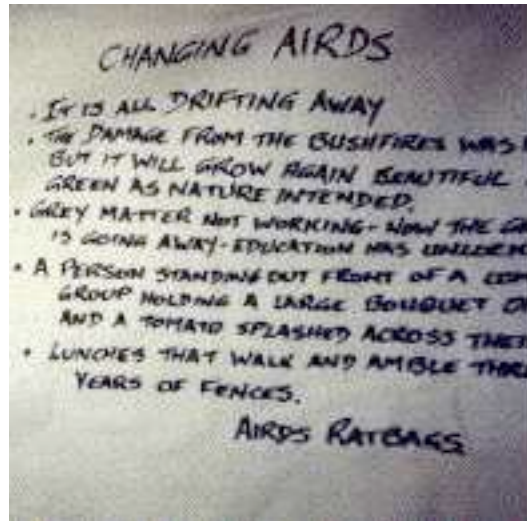 CHANGING AIRDS
• IT IS ALL DRIFTING AWAY
• THE DAMAGE FROM THE BUSHFIRES WAS
BUT IT WILL GROW AGAIN BEAUTIFUL
GREEN AS NATURE INTENDED.
• GREY MATTER NOT WORKING - NOW THE
IS GOING AWAY - EDUCATION HAS
• A PERSON STANDING OUT FRONT OF A
GROUP HOLDING A LARGE BOUQUET
AND A TOMATO SPLASHED ACROSS
• LUNCHES THAT WALK AND AMBLE
YEARS OF FENCES.
AIRDS RATBAGS